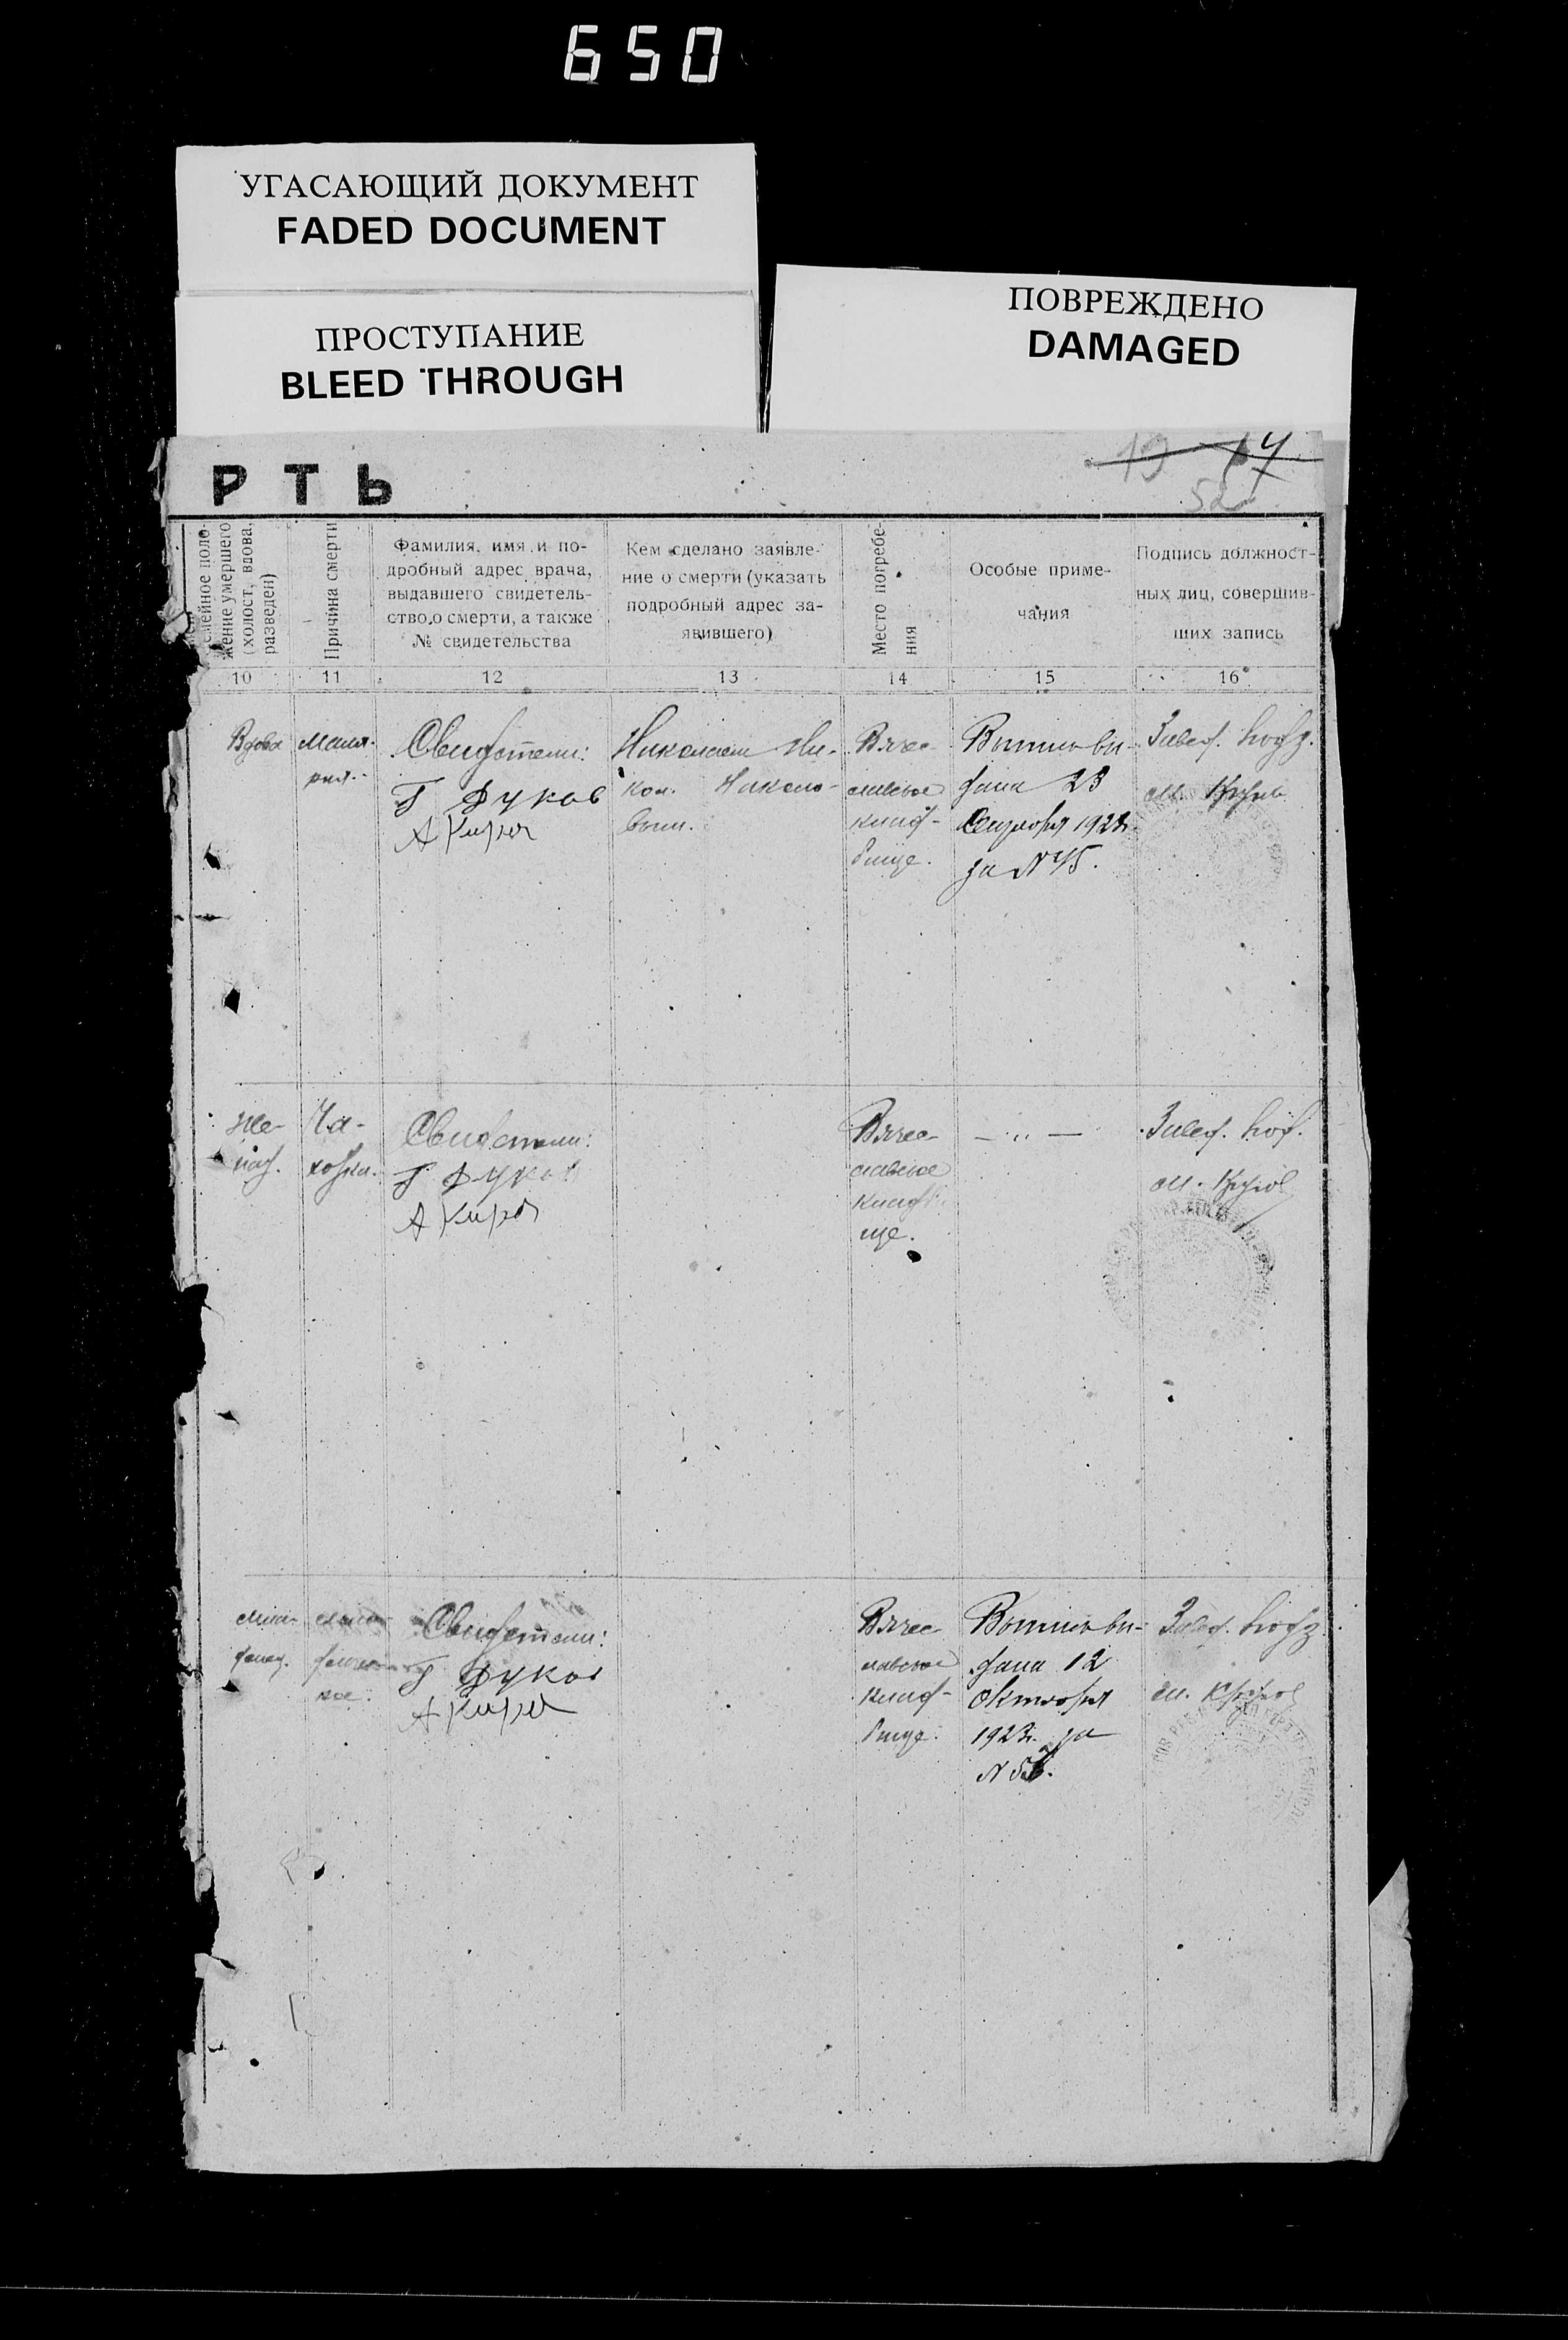 650
УГАСАЮЩИЙ ДОКУМЕНТ
FADED DOCUMENT
ПРОСТУПАНИЕ
BLEED THROUGH
ПОВРЕЖДЕНО
DAMAGED
РТЬ
52
мейное поло-
жение умершего
(холост, вдова,
разведен)
Причина смерти
Фамилия, имя и по-
дробный адрес врача,
выдавшего свидетель-
ство о смерти, а также
№ свидетельства
Кем сделано заявле-
ние о смерти (указать
подробный адрес за-
явившего)
Место погребе-
ния
Особые приме-
чания
Подпись должност-
ных лиц, совершив-
ших запись
10
11
12
13
14
15
16
Вдова
маля-
рия.
Свидетели:
Г Дуков
А Киров
Николаем Ни-
кол. Николо-
вым.
Вячес-
лавское
клад-
бище.
Выпись вы-
дана 23
Сентября 1923г.
за № 45.
Завед. подз.
Же-
нат.
Ча-
хотка.
Свидетели:
Г Дуков
А Киров
Вячес-
лавское
кладби-
ще.
— „ —
Завед. под.
Свидетели:
Г Дуков
А Киров
Вячес-
лавское
клад-
бище.
Выпись вы-
дана 12
Октября
1923г. за
Завед. подз.